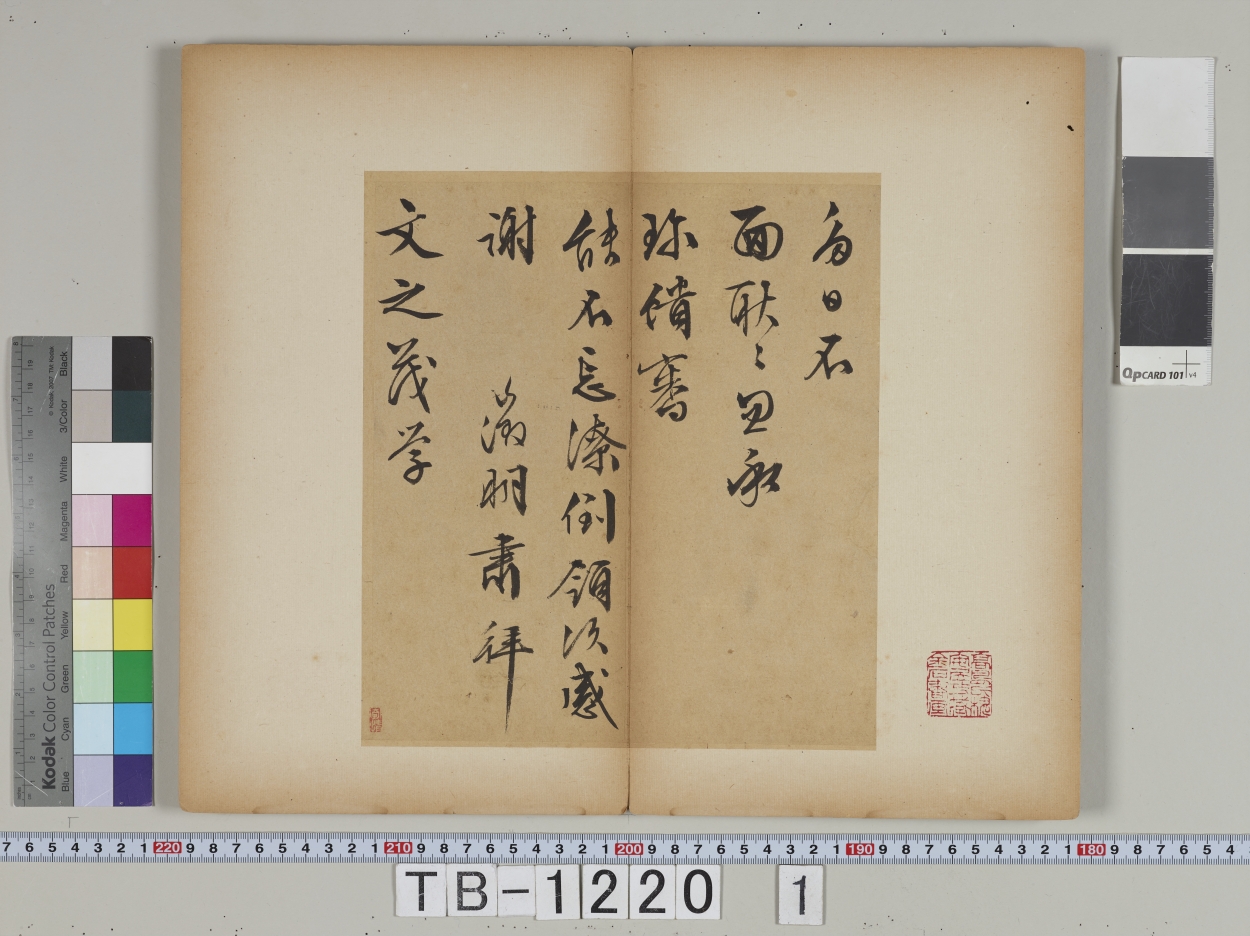 多日不
面耿〻忽承
珍饋審
能不忘潦倒領次感
謝 徵明肅拜
文之茂学
QPCARD 101 v4
Kodak Color Control Patches
Blue Cyan Green Yellow Red Magenta White 3/Color Black
7 6 5 4 3 2 1 220 9 8 7 6 5 4 3 2 1 210 9 8 7 6 5 4 3 2 1 200 9 8 7 6 5 4 3 2 1 190 9 8 7 6 5 4 3 2 1 180 9 8 7 6 5 4
TB-1220 1